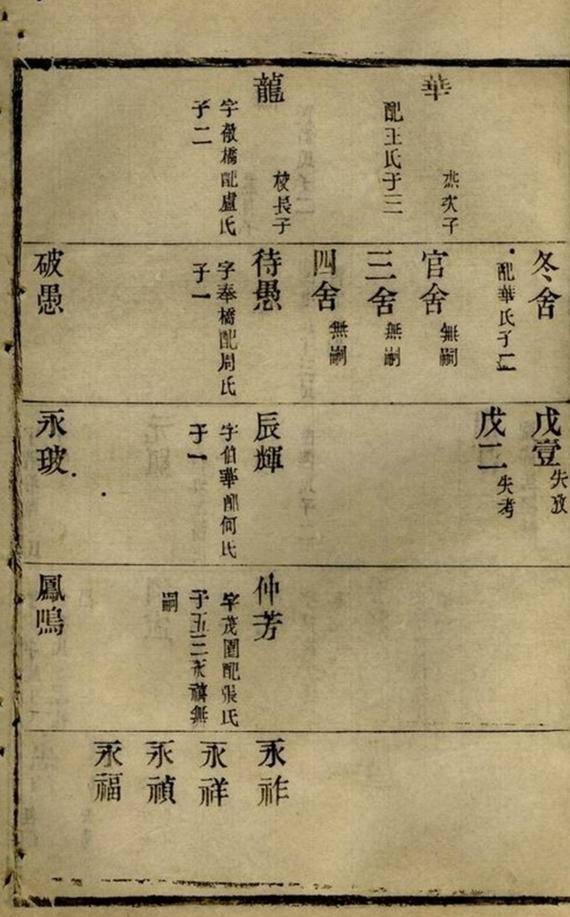 華
烋次子
配王氏子三
龍
枝長子
字徽橋配盧氏
子二
冬舍
配華氏子二
官舍
無嗣
三舍
無嗣
四舍
無嗣
待愚
字奉橋配周氏
子一
破愚
戊壹
失攷
戊二
失考
辰輝
字伯華配何氏
子一
永玻
仲芳
字茂園配張氏
子五三永禛無
嗣
鳳鳴
永祚
永祥
永禎
永福